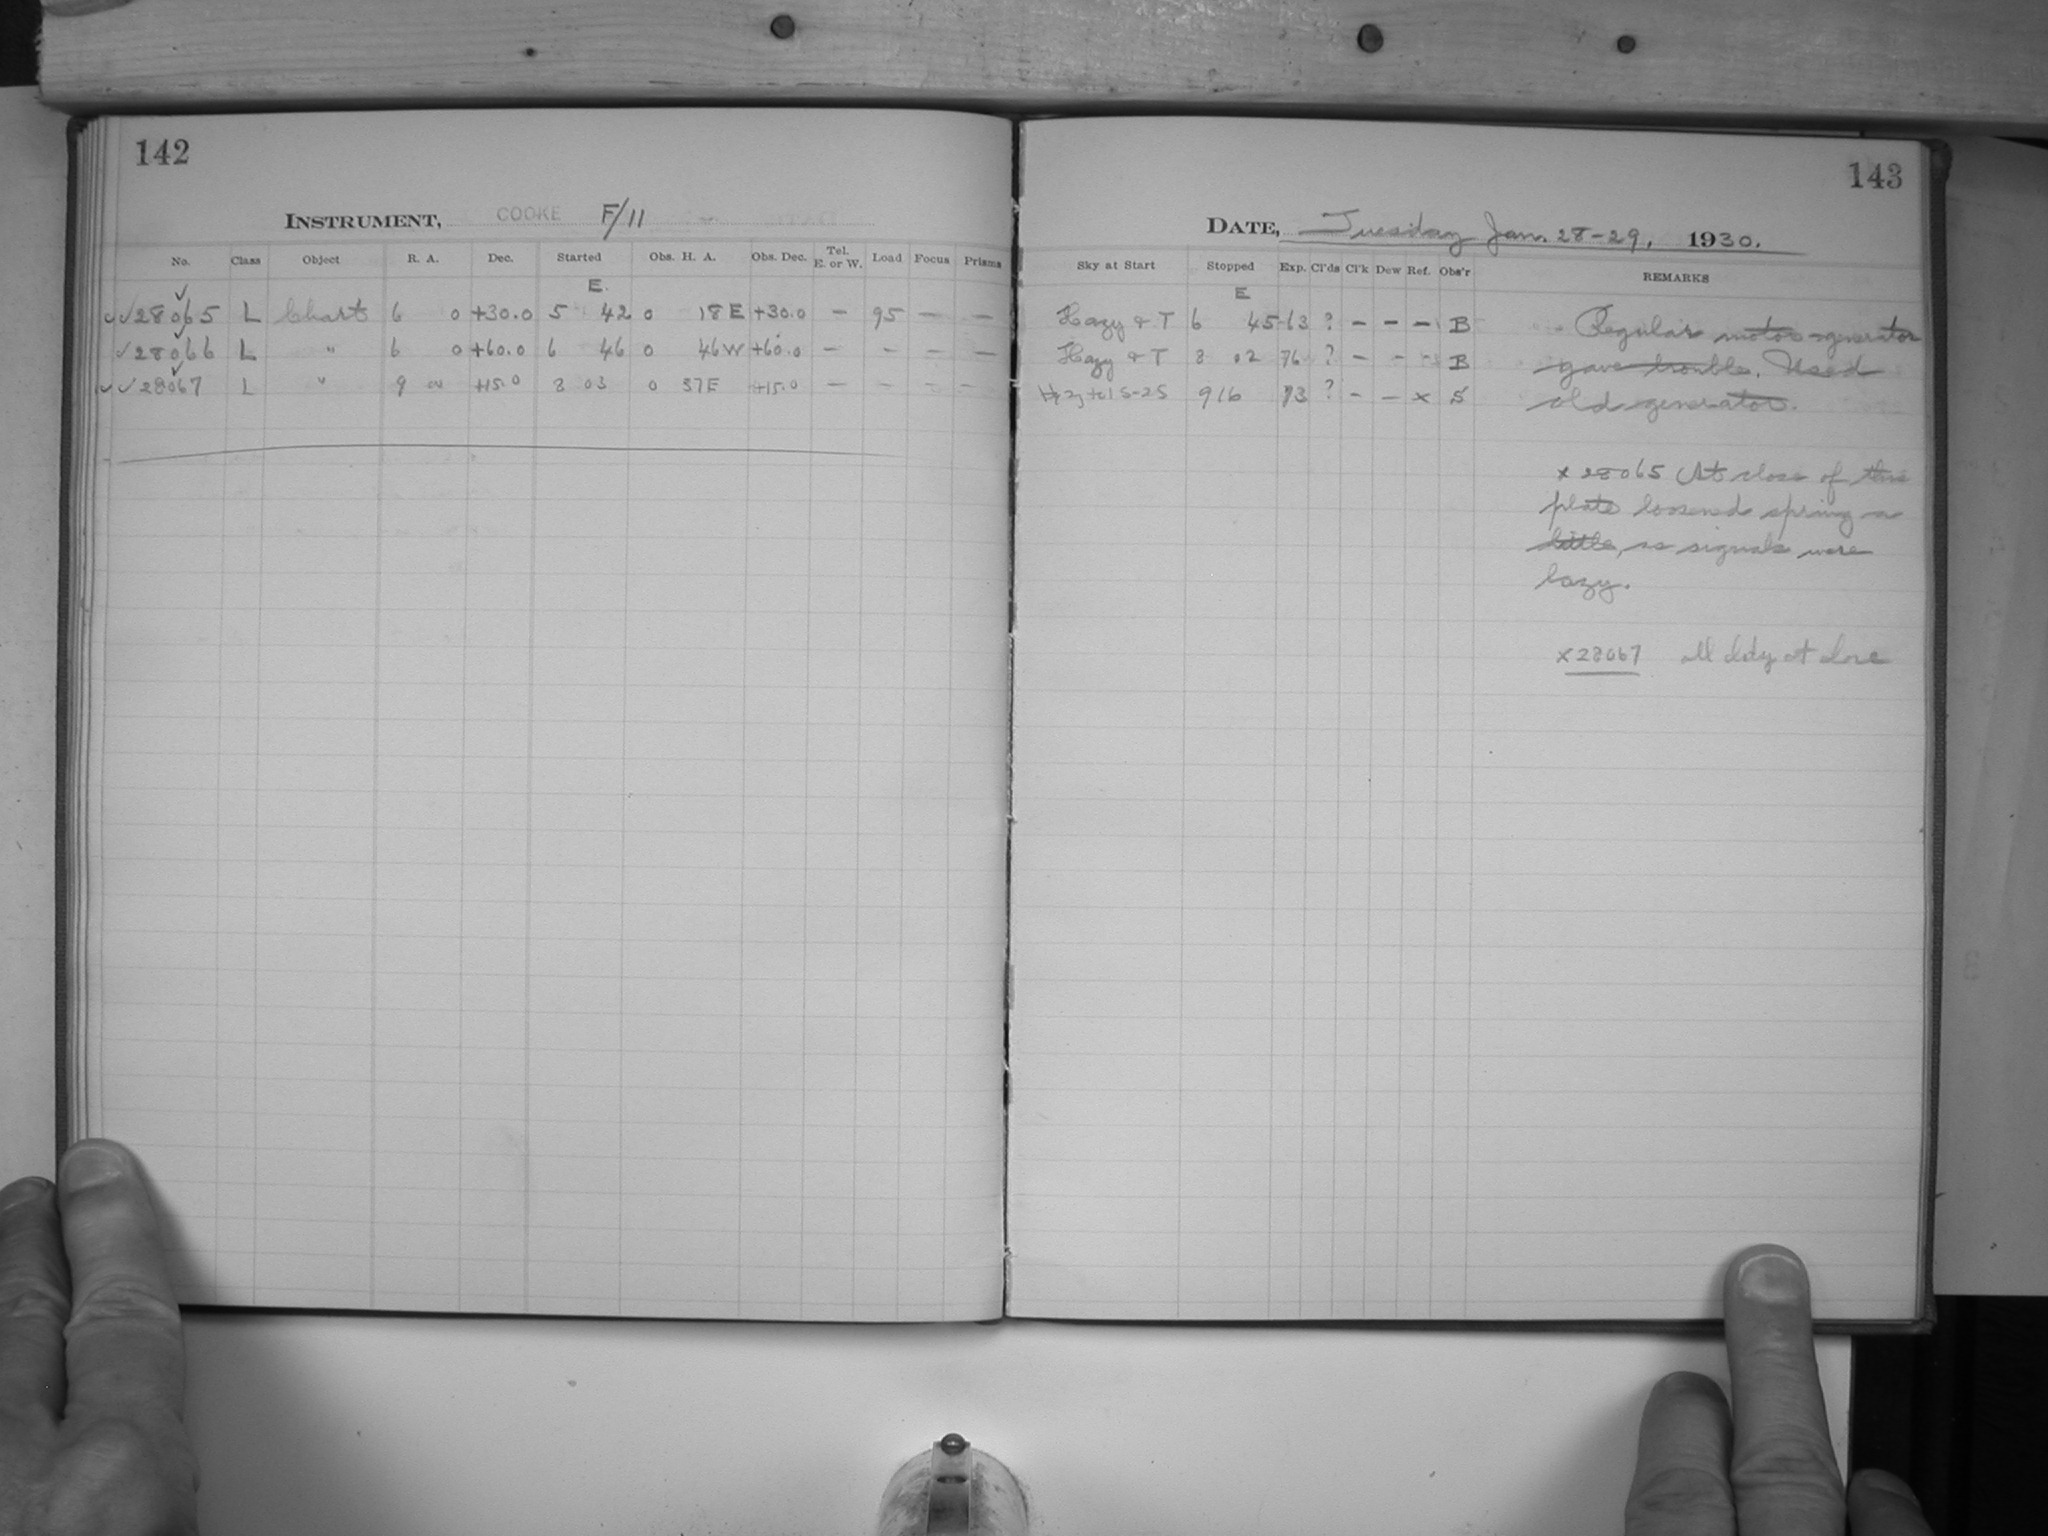 142
INSTRUMENT, COOKE F/11
No. Class Object R. A. Dec. Started Obs. H. A. Obs. Dec. Tel. E. or W. Load Focus Prisms
E.
✓✓28065 L Charts 6 0 +30.0 5 42 0 18 E +30.0 – 95 – –
✓28066 L " 6 0 +60.0 6 46 0 46 W +60.0 – – – –
✓✓28067 L " 9 00 +15.0 8 03 0 37 E +15.0 – – – –
143
DATE, Tuesday Jan. 28-29, 1930.
Sky at Start Stopped Exp. Cl'ds Cl'k Dew Ref. Obs'r REMARKS
E
Hazy & T 6 45 63 ? – – – B
Hazy & T 8 02 76 ? – – B
9 16 73 ? – – x S
Regular motor-generator
gave trouble. Used
old generator.
x 28065 At close of this
plate loosened spring a
little, as signals were
lazy.
x 28067 all at close